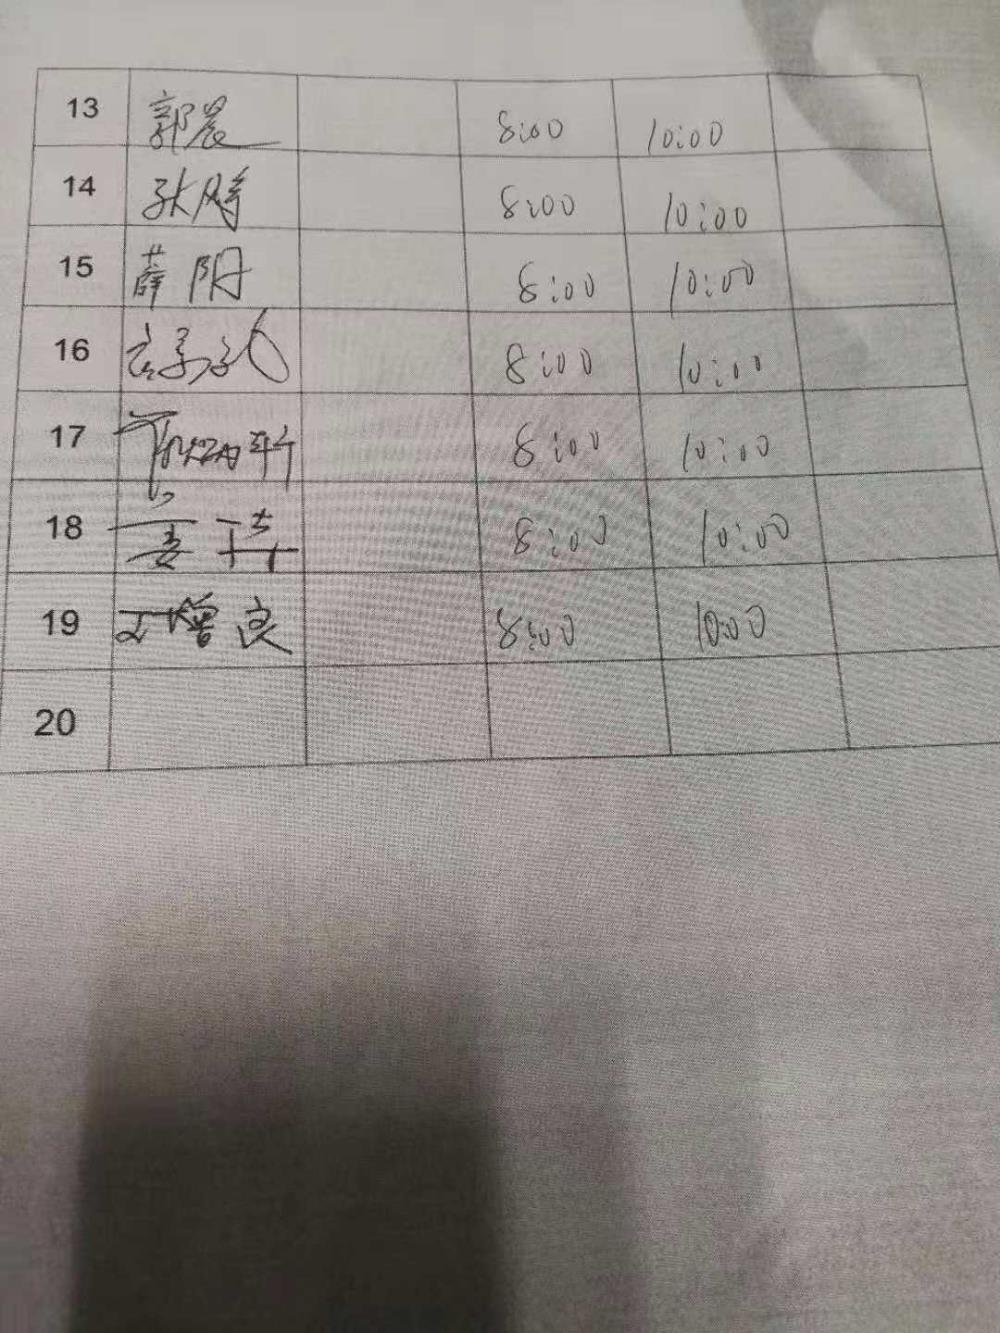 13 郭晨 8:00 10:00
14 张腾 8:00 10:00
15 薛阳 8:00 10:00
16 8:00 10:00
17 8:00 10:00
18 8:00 10:00
19 王增良 8:00 10:00
20